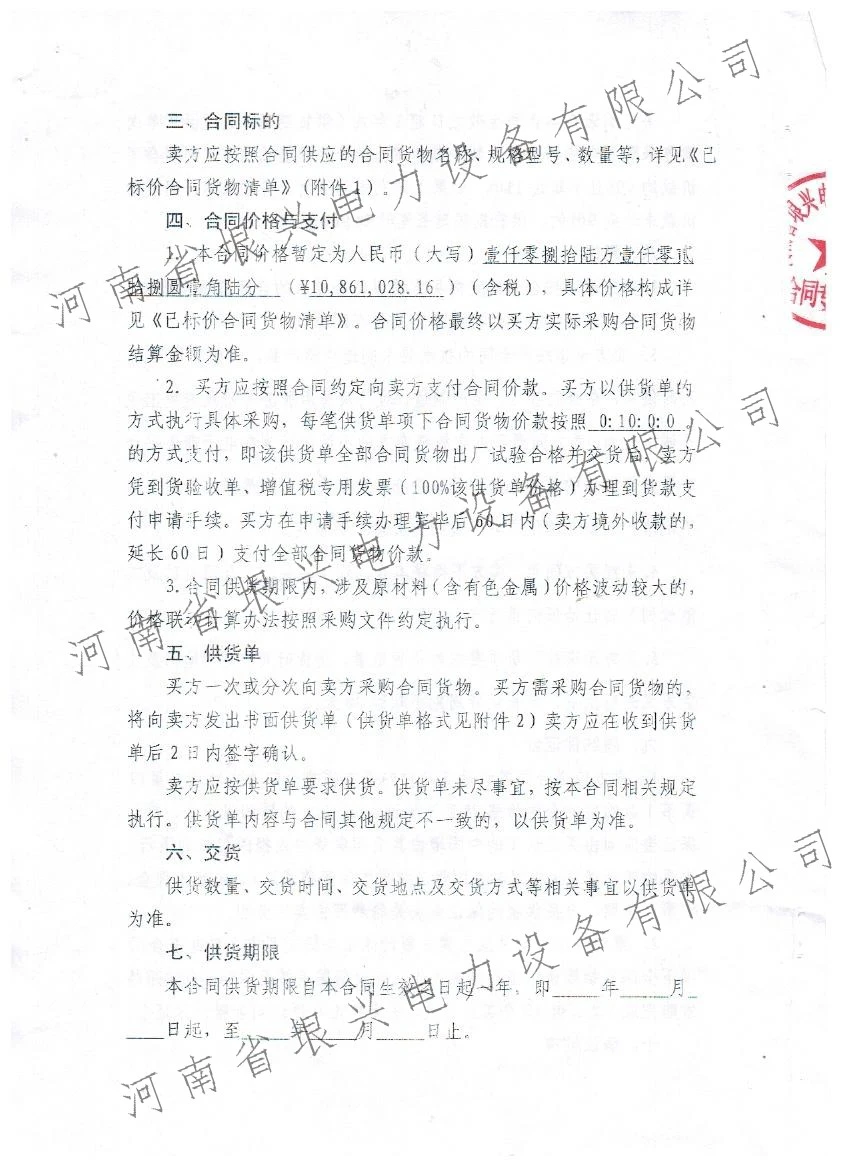 三、合同标的
卖方应按照合同供应的合同货物名称、规格型号、数量等，详见《已
标价合同货物清单》（附件1）。
四、合同价格与支付
1. 本合同价格暂定为人民币（大写）壹仟零捌拾陆万壹仟零贰
拾捌圆壹角陆分 （¥10,861,028.16 ）（含税），具体价格构成详
见《已标价合同货物清单》。合同价格最终以买方实际采购合同货物
结算金额为准。
2. 买方应按照合同约定向卖方支付合同价款。买方以供货单的
方式执行具体采购，每笔供货单项下合同货物价款按照 0:10:0:0
的方式支付，即该供货单全部合同货物出厂试验合格并交货后，卖方
凭到货验收单、增值税专用发票（100%该供货单价格）办理到货款支
付申请手续。买方在申请手续办理完毕后60日内（卖方境外收款的，
延长60日）支付全部合同货物价款。
3.合同供货期限内，涉及原材料（含有色金属）价格波动较大的，
价格联动计算办法按照采购文件约定执行。
五、供货单
买方一次或分次向卖方采购合同货物。买方需采购合同货物的，
将向卖方发出书面供货单（供货单格式见附件2）卖方应在收到供货
单后2日内签字确认。
卖方应按供货单要求供货。供货单未尽事宜，按本合同相关规定
执行。供货单内容与合同其他规定不一致的，以供货单为准。
六、交货
供货数量、交货时间、交货地点及交货方式等相关事宜以供货单
为准。
七、供货期限
本合同供货期限自本合同生效之日起一年，即____年____月
____日起，至____年____月____日止。
河南省垠兴电力设备有限公司
河南省垠兴电力设备有限公司
河南省垠兴电力设备有限公司
垠兴电
合同专